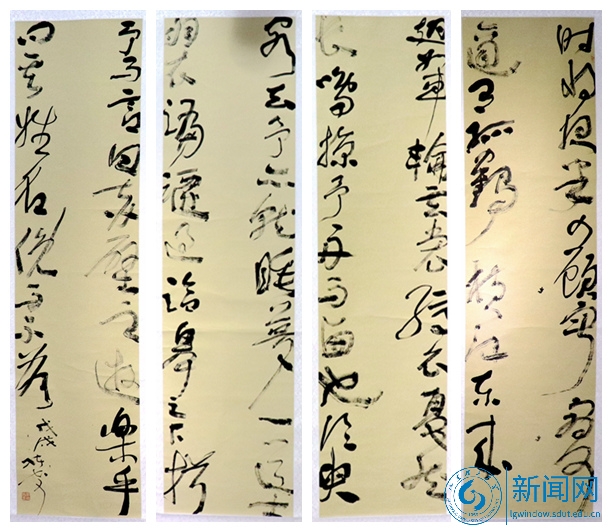 时将夜半四顧寂寥
適有孤鶴横江東来
翅如車輪玄裳縞衣戛然
長鳴掠予舟而西也須臾
客去予亦就睡夢一道士
羽衣蹁躚過臨皋之下揖
予而言曰赤壁之遊樂乎
问其姓名俛而不答
戊戌
新闻网
lgwindow.sdut.edu.cn